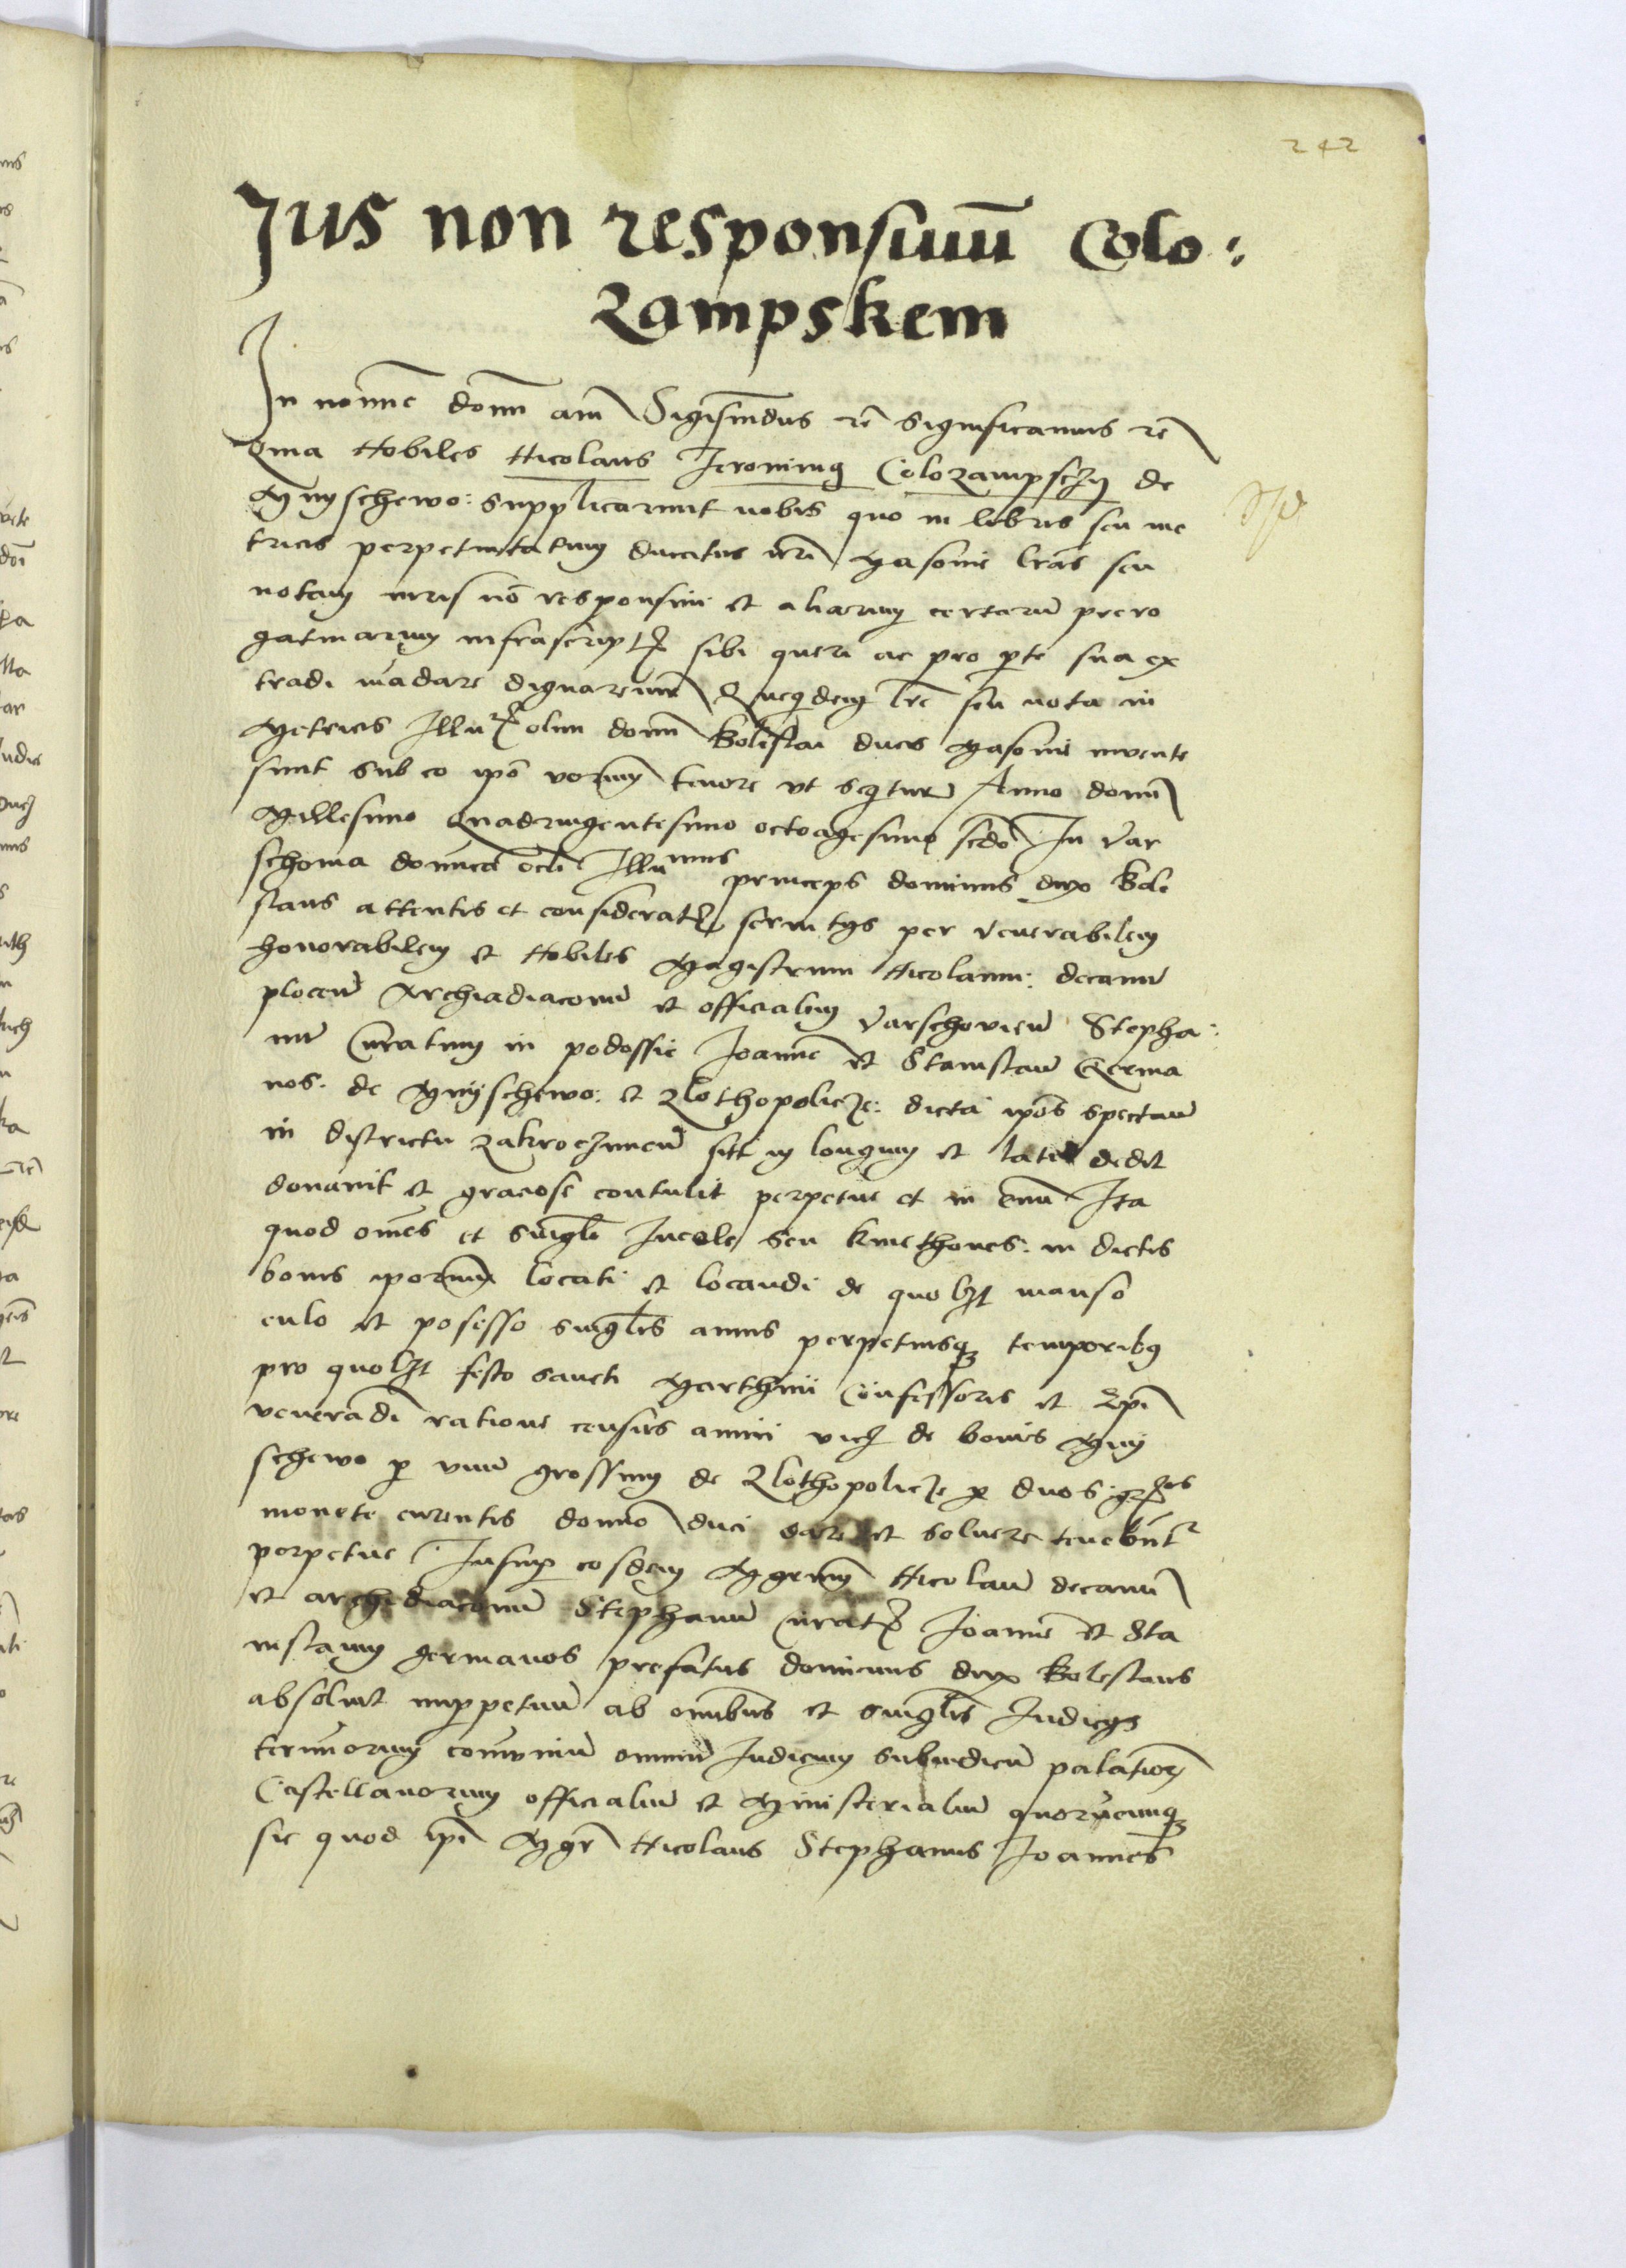 242
Jus non responsiuū Colo:
Zampskem
In noīne domī amē Sigismūdus rē significamus rē
Quia Nobiles Nicolaus Jeronimq Colozampsczy de
Mnyschewo: supplicarunt nobis quo in libris seu me
tricis perpetuitatum ducatus nrī Masouie lrās seu
notam iuris nō responsiui et aliarum certarū prero
gatiuarum infrascript sibi queri ac pro pte sua ex
tradi mādare dignaremur Quequidem lrē seu nota in
Metricis Illu olim domī Boleslai ducis Masouie inuente
sunt sub eo ipō verorum tenore vt seqitur Anno domī
Millesimo Quadringentesimo octoagesimo sēdo In Var
schouia dominica ocli Illumus princeps dominus dux Bole
slaus attentis et considerat seruitys per venerabilem
honorabilem et Nobiles Magistrum Nicolaum: decanū
plocēn Archidiaconū et officialem Varschouien Stepha:
nū Curatum in podossie Joannē et Stanislaū Germa
nos. de Mnyschewo: et Zlothopolicze: dicta ipōs spectan
in districtu Zakroczimen sitt in longum et latū dedit
donauit et graciose contulit perpetue et in euū Ita
quod omēs et singli Incole seu kmethones: in dictis
bonis ipōrum locati et locandi de quolzt manso
culo et posesso singlis annis perpetuisq temporibq
pro quolzt festo sancti Marthini Confessoris et Epī
venerādi ratione census annui vicz de bonis Mny
schewo p vnū grossum de Zlothopolicze p duos gr
monete currentis domīo duci dare et soluere tenebūtr
perpetue Insup eosdem Mgrum Nicolaū decanū
et archidiaconū Stephanū Curat Joannē et Sta
nislaum germanos prefatus dominus dux Boleslaus
absoluit imppetuū ab omībus et singlis Judicys
terminorum comūniū omniū Judicum subiudicū palatinor
Castellanorum officialiū et Ministerialiū quorūcumq
sic quod ipī Mgr Nicolaus Stephanus Joannes